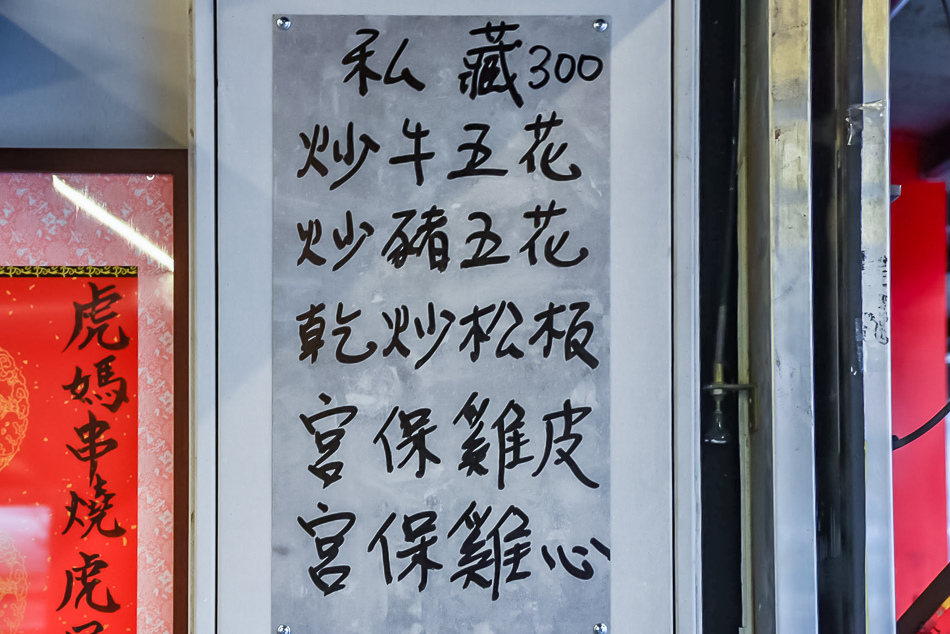 私藏300
炒牛五花
炒豬五花
乾炒松板
宮保雞皮
宮保雞心
虎媽串燒虎